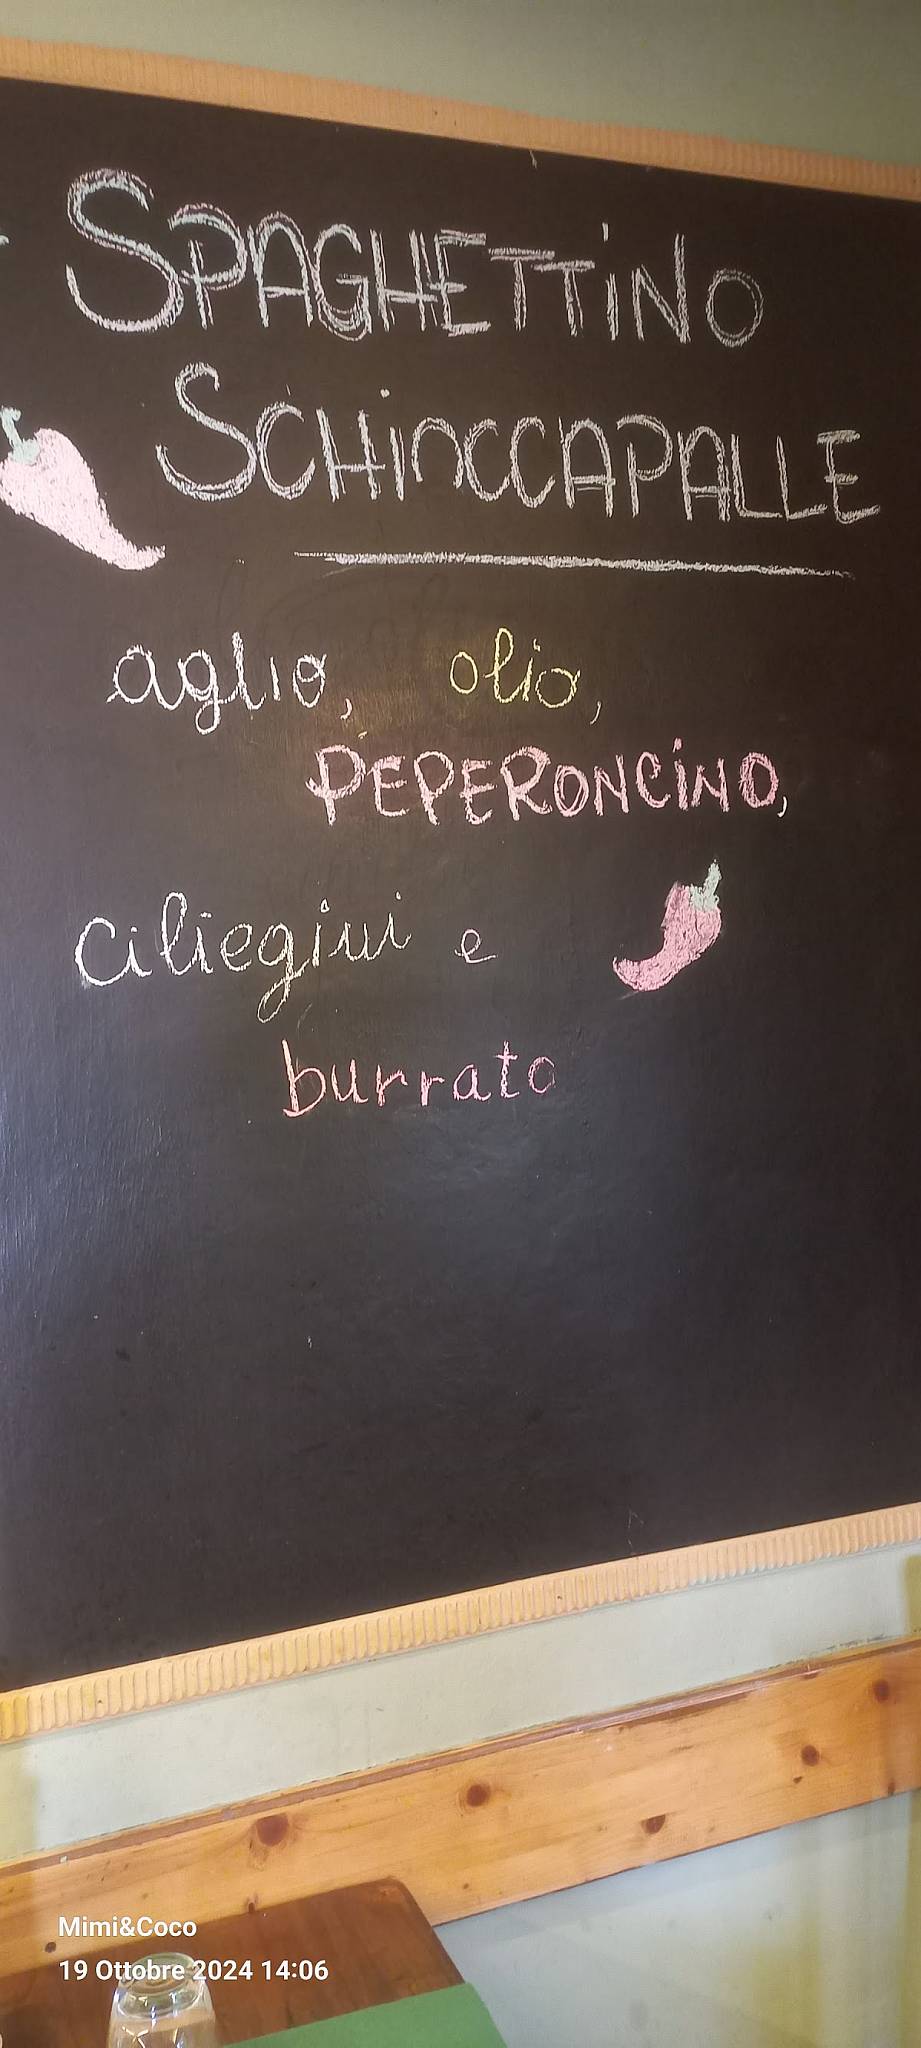 SPAGHETTiNO
SCHiNCCAPALLE
aglio, olio,
PEPERONCiNO,
Ciliegini e
burrato
Mimi&Coco
19 Ottobre 2024 14:06